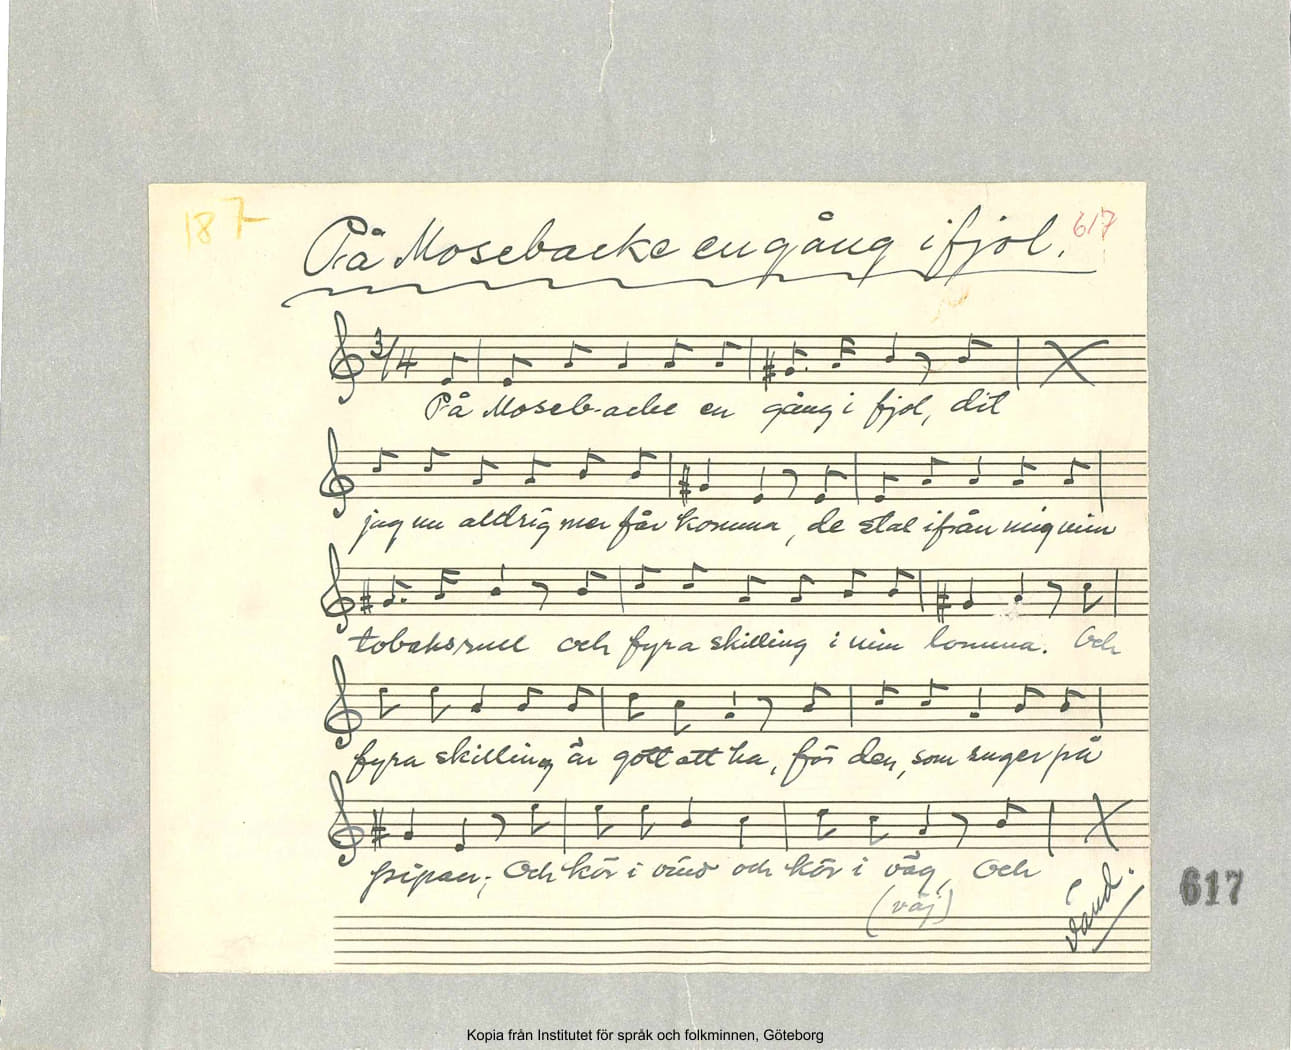 187
På Mosebacke en gång i fjol.
617
3/4
På Moseb-acke en gång i fjol, dit
jag nu aldrig mer får komma, de stal ifrån mig min
tobaksrull och fyra skilling i min lomma. Och
fyra skilling är gott att ha, för den, som suger på
pipan; Och kör i vind och kör i väg, Och
(väj)
Vänd.
617
Kopia från Institutet för språk och folkminnen, Göteborg